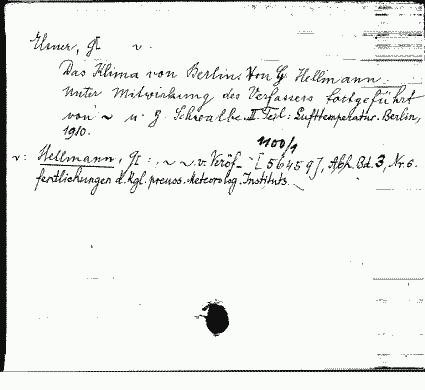 Elsner, G. v.
Das Klima von Berlin. Von G. Hellmann.
Unter Mitwirkung des Verfassers fortgeführt
von ~ u. G. Schwalbe. II. Teil: Lufttemperatur. Berlin,
1910.
1100/1
v: Hellmann, G.: ~ ~ v. Veröf- [56459], Abh. Bd. 3, Nr. 6.
fentlichungen d. Kgl. preuss. Meteorolog. Instituts.